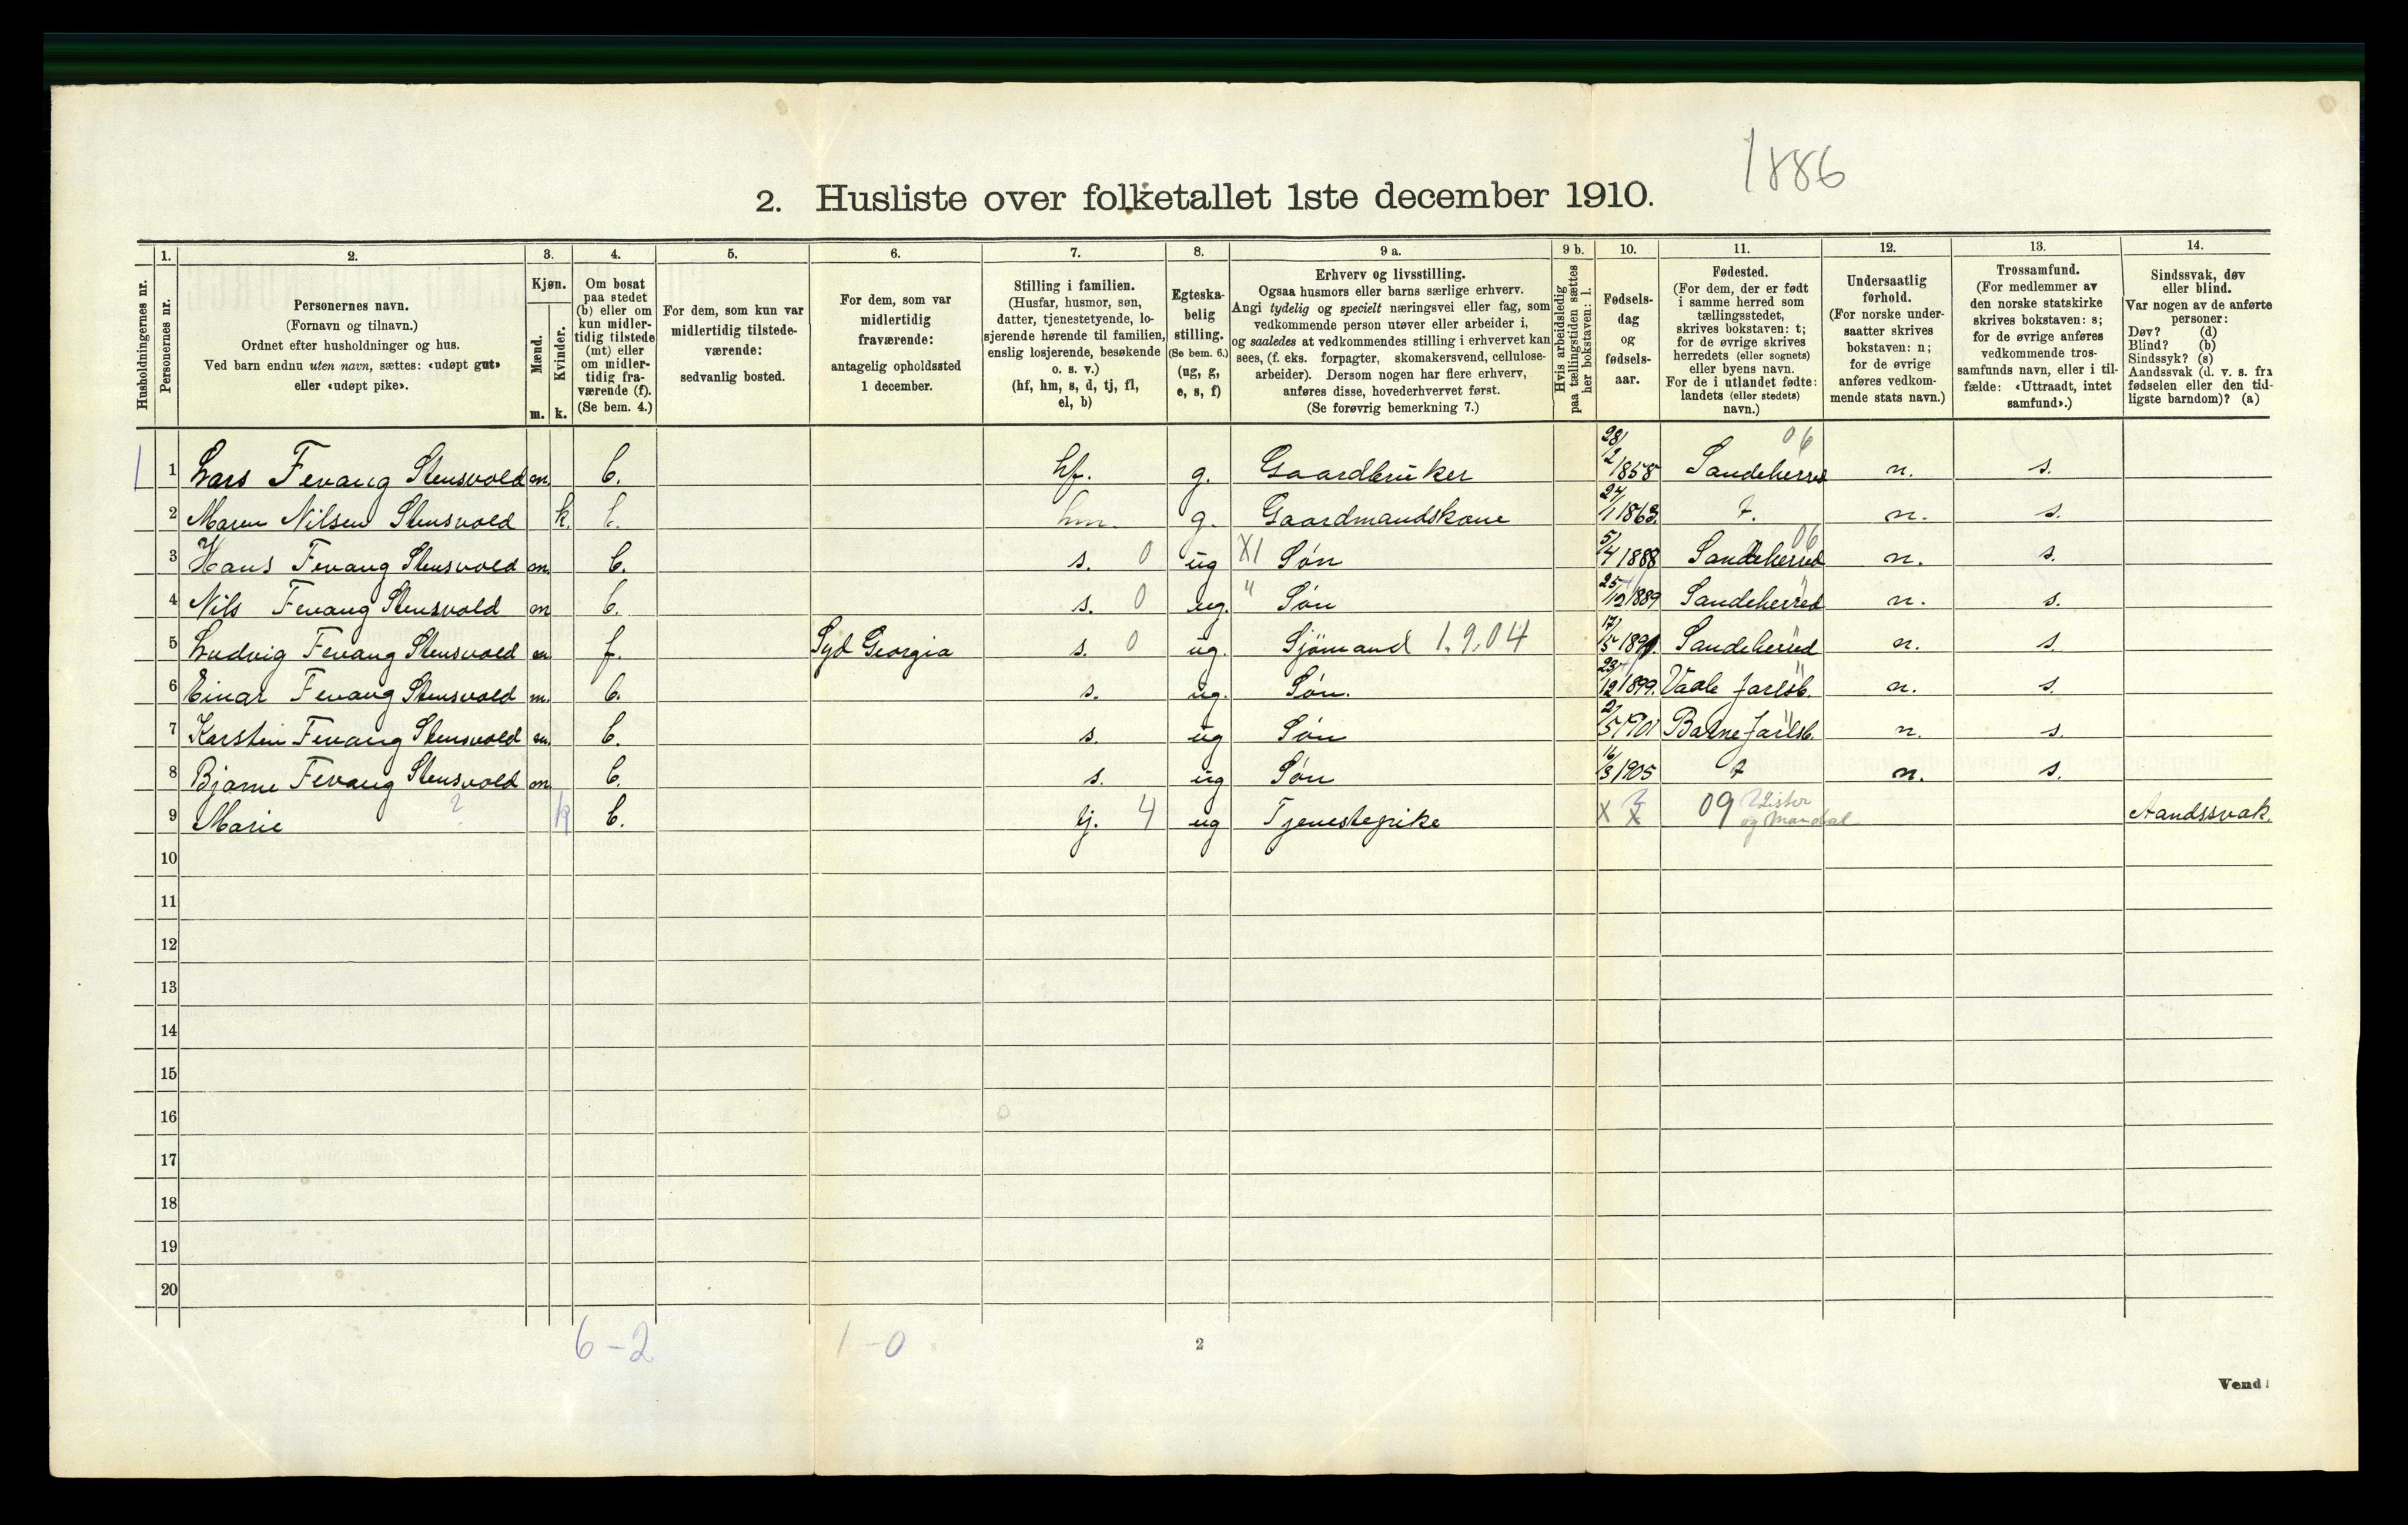 1886
2. Husliste over folketallet 1ste december 1910.
Husholdningernes nr.
1. Personernes nr.
2. Personernes navn.
(Fornavn og tilnavn.)
Ordnet efter husholdninger og hus.
Ved barn endnu uten navn, sættes: «udøpt gut»
eller «udøpt pike».
3. Kjøn.
Mænd. Kvinder.
m. k.
4. Om bosat
paa stedet
(b) eller om
kun midler-
tidig tilstede
(mt) eller
om midler-
tidig fra-
værende (f).
(Se bem. 4.)
5. For dem, som kun var
midlertidig tilstede-
værende:
sedvanlig bosted.
6. For dem, som var
midlertidig
fraværende:
antagelig opholdssted
1 december.
7. Stilling i familien.
(Husfar, husmor, søn,
datter, tjenestetyende, lo-
sjerende hørende til familien,
enslig losjerende, besøkende
o. s. v.)
(hf, hm, s, d, tj, fl,
el, b)
8. Egteska-
belig
stilling.
(Se bem. 6.)
(ug, g,
e, s, f)
9 a. Erhverv og livsstilling.
Ogsaa husmors eller barns særlige erhverv.
Angi tydelig og specielt næringsvei eller fag, som
vedkommende person utøver eller arbeider i,
og saaledes at vedkommendes stilling i erhvervet kan
sees, (f. eks. forpagter, skomakersvend, cellulose-
arbeider). Dersom nogen har flere erhverv,
anføres disse, hovederhvervet først.
(Se forøvrig bemerkning 7.)
9 b. Hvis arbeidsledig
paa tællingstiden sættes
her bokstaven: l.
10. Fødsels-
dag
og
fødsels-
aar.
11. Fødested.
(For dem, der er født
i samme herred som
tællingsstedet,
skrives bokstaven: t;
for de øvrige skrives
herredets (eller sognets)
eller byens navn.
For de i utlandet fødte:
landets (eller stedets)
navn.)
12. Undersaatlig
forhold.
(For norske under-
saatter skrives
bokstaven: n;
for de øvrige
anføres vedkom-
mende stats navn.)
13. Trossamfund.
(For medlemmer av
den norske statskirke
skrives bokstaven: s;
for de øvrige anføres
vedkommende tros-
samfunds navn, eller i til-
fælde: «Uttraadt, intet
samfund».)
14. Sindssvak, døv
eller blind.
Var nogen av de anførte
personer:
Døv? (d)
Blind? (b)
Sindssyk? (s)
Aandssvak (d. v. s. fra
fødselen eller den tid-
ligste barndom)? (a)
1 1 Lars Fevang Stensvold m. b. hf. g. Gaardbruker 28/2 1858 Sandeherred 06 n. s.
2 Maren Nilsen Stensvold k. b. hm. g. Gaardmandskone 24/1 1863. t. n. s.
3 Hans Fevang Stensvold m. b. s. 0 ug X1 Søn 5/4 1888 Sandeherred 06 n. s.
4 Nils Fevang Stensvold m b. s. 0 ug. " Søn 25/12 1889 Sandeherred " n. s.
5 Ludvig Fevang Stensvold m f. Syd Georgia s. 0 ug. Sjømand 1.9.04 17/5 1891. Sandeherred " n. s.
6 Einar Fevang Stensvold m. b. s. ug. Søn. 23/12 1899. Vaale Jarlsb. " n. s.
7 Karsten Fevang Stensvold m. b. s. ug Søn 2/5 1901 Borre Jarlsb. " n. s.
8 Bjarne Fevang Stensvold m b. s. ug Søn 16/3 1905 t n. s.
9 Marie ? k b. tj. 4 ug Tjenestepike X X ? 09 ? Lister og Mandal Aandssvak.
10
11
12
13
14
15
16
17
18
19
20
6-2 1-0
2
Vend!